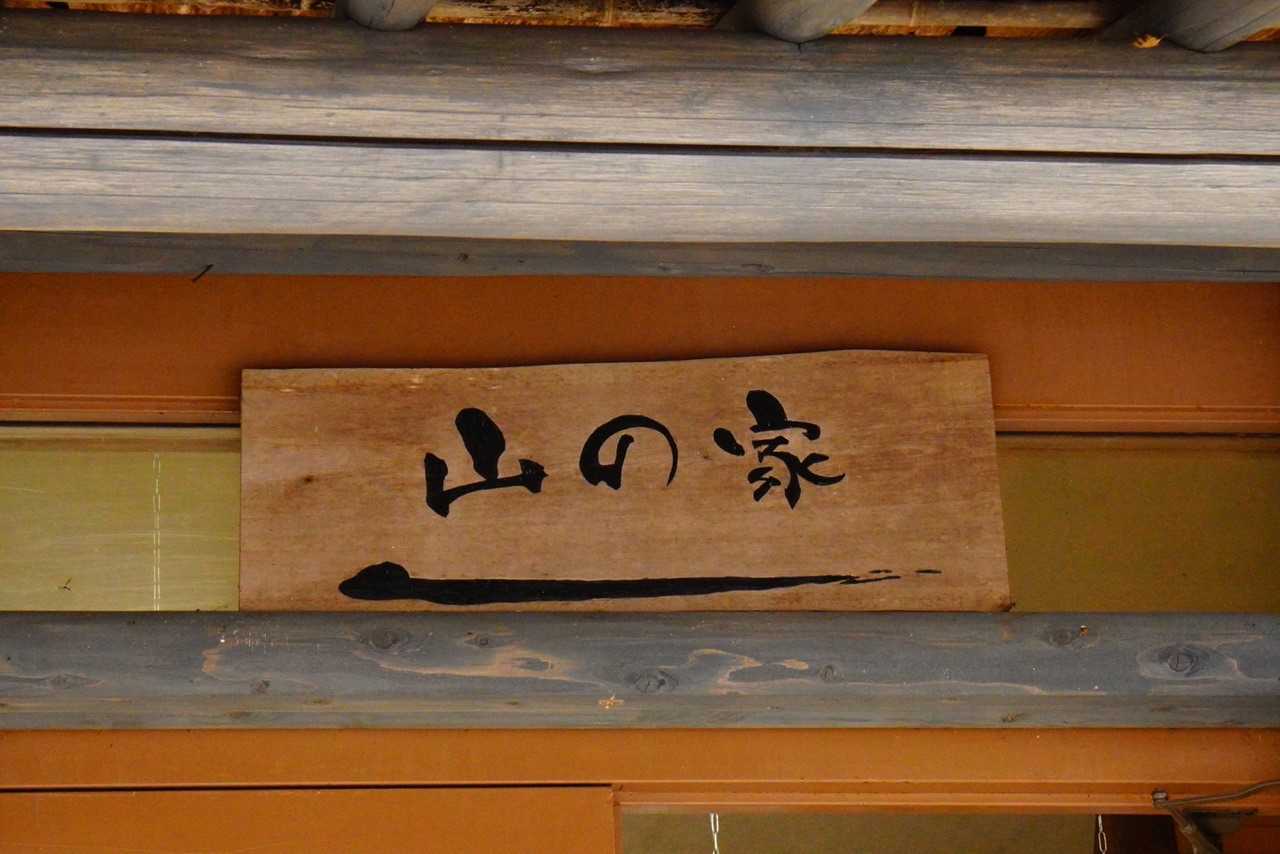 山の家